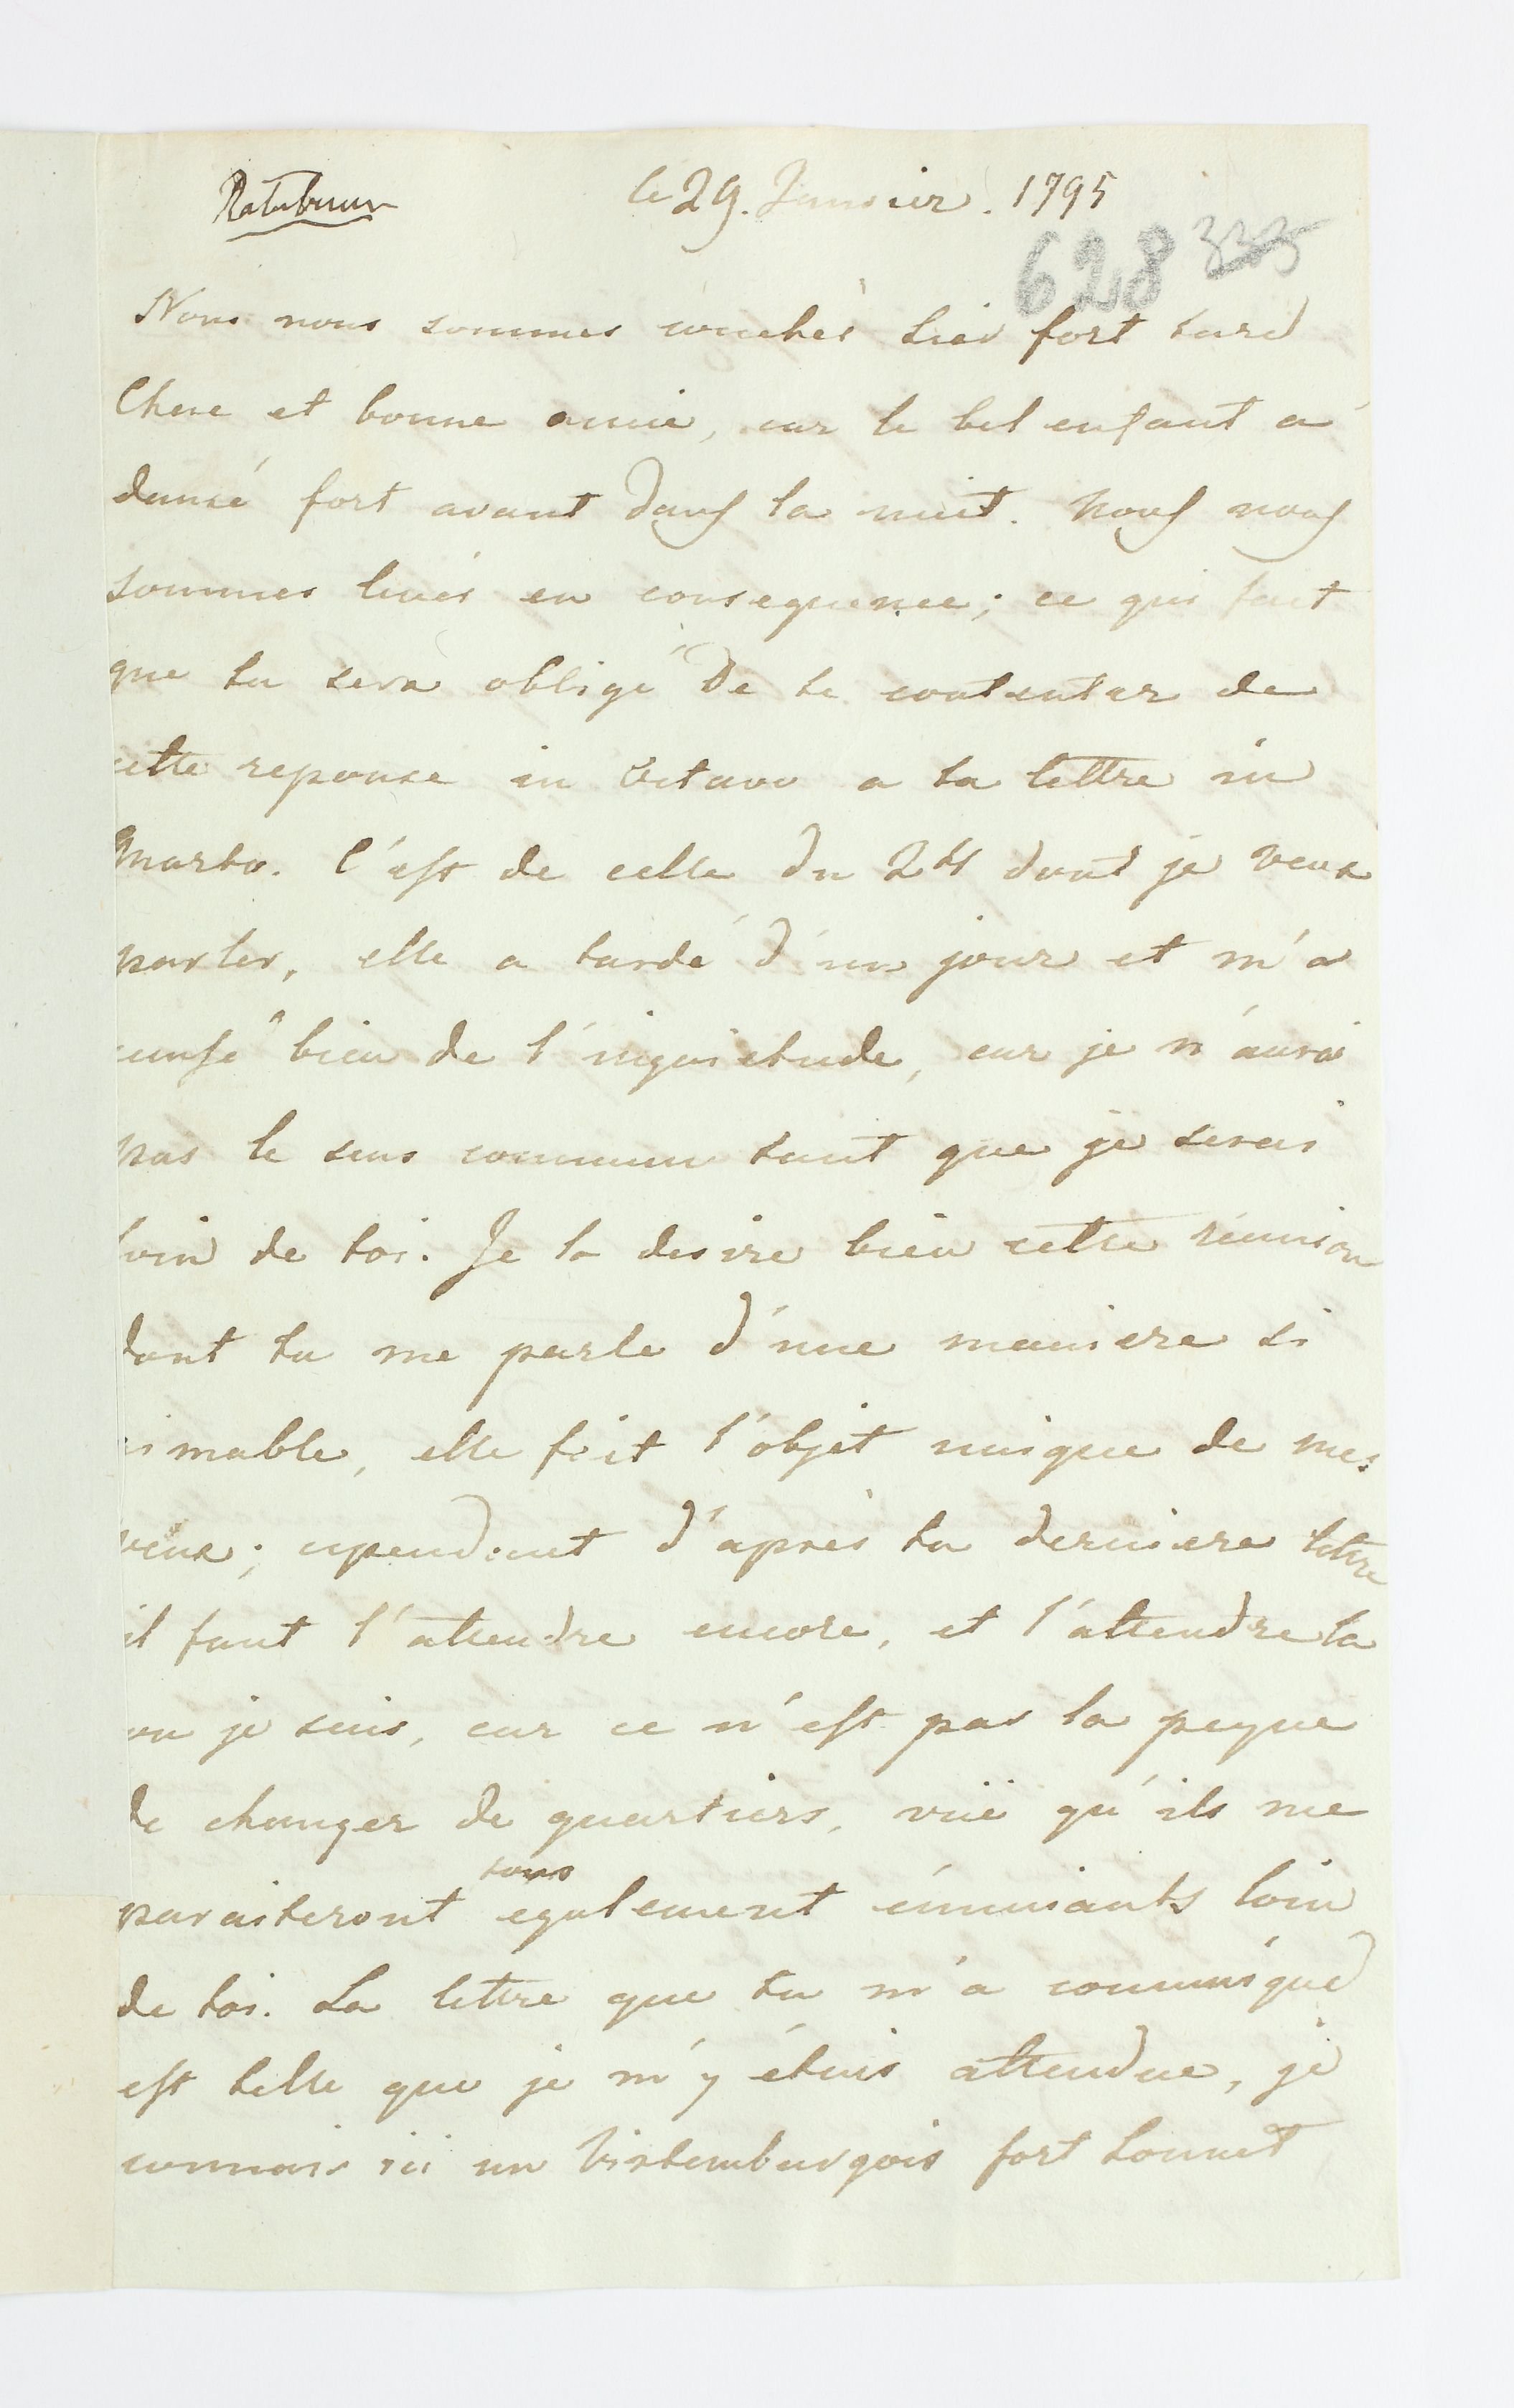 le 29. Janvier. 1795
628 335
Nous nous sommes couchés hier fort tard
Chere et bonne amie, car le bel enfant a
dansé fort avant dans la nuit. Nous nous
sommes levés en consequence; ce qui fait
que tu sera obligé De te contenter de
cette reponse in Octavo a ta lettre in
Quarto. C'est de celle du 24 dont je veux
parler, elle a tardé d'un jour et m'a
causé bien de l'inquietude, car je n'aurai
pas le sens commun tant que je serai
loin de toi. Je la desire bien cette réunion
dont tu me parle d'une maniere si
aimable, elle fait l'objet unique de mes
vœux; cependant d'après ta derniere lettre
il faut l'attendre encore, et l'attendre la
ou je suis, car ce n'est pas la peyne
de changer de quartiers, vüe qu'ils me
tous
paraiteront egalement énnuiants loin
de toi. La lettre que tu m'a communiqué
est telle que je m'y étais attendue, je
connais ici un Virtembergois fort honnet